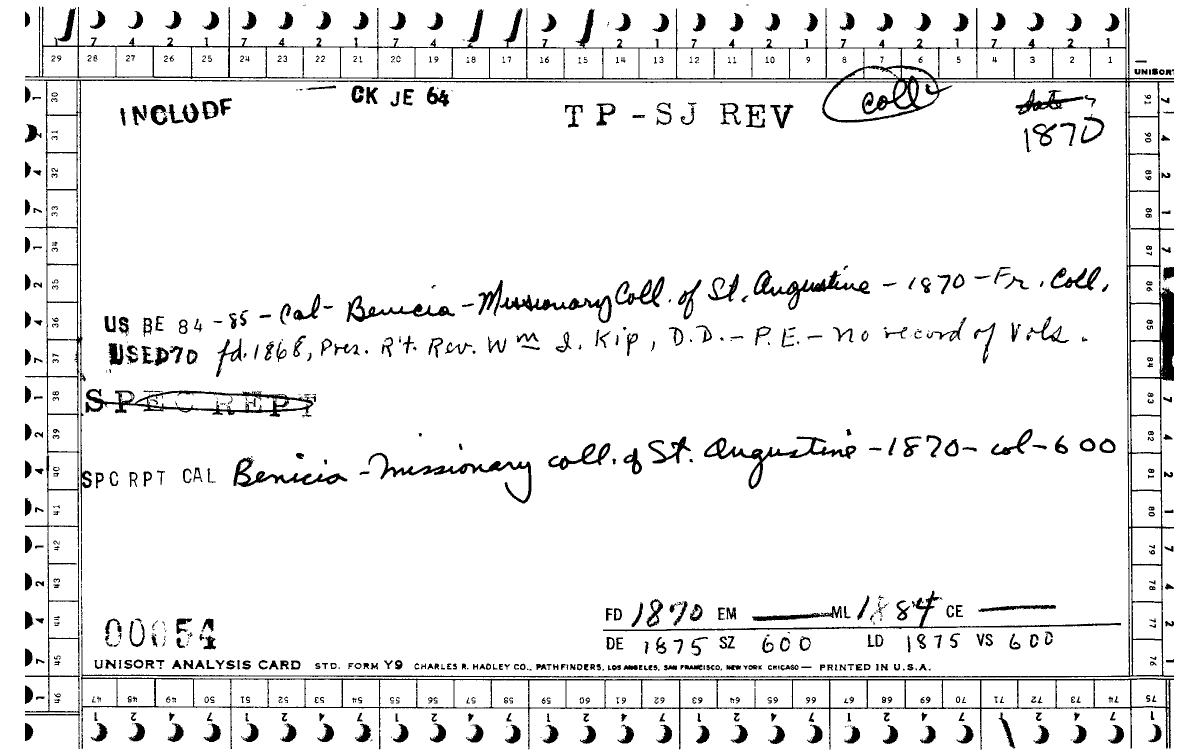 7 4 2 1 7 4 2 1 7 4 2 1 7 4 2 1 7 4 2 1 7 4 2 1 7 4 2 1
29 28 27 26 25 24 23 22 21 20 19 18 17 16 15 14 13 12 11 10 9 8 7 6 5 4 3 2 1
UNISORT
INCLUDE CK JE 64 TP-SJ REV coll date ?
1870
US BE 84-85 - Cal - Benicia - Missionary Coll. of St. Augustine - 1870 - Fr. Coll,
USED70 fd. 1868, Pres. R't. Rev. Wm I. Kip, D.D. - P.E. - No record of Vols.
SPEC REPT
SPC RPT CAL Benicia - Missionary coll. of St. Augustine - 1870 - col - 600
FD 1870 EM — ML 1884 CE —
00054 DE 1875 SZ 600 LD 1875 VS 600
UNISORT ANALYSIS CARD STD. FORM Y9 CHARLES R. HADLEY CO., PATHFINDERS, LOS ANGELES, SAN FRANCISCO, NEW YORK CHICAGO — PRINTED IN U.S.A.
30 31 32 33 34 35 36 37 38 39 40 41 42 43 44 45 46
91 90 89 88 87 86 85 84 83 82 81 80 79 78 77 76 75
47 48 49 50 51 52 53 54 55 56 57 58 59 60 61 62 63 64 65 66 67 68 69 70 71 72 73 74